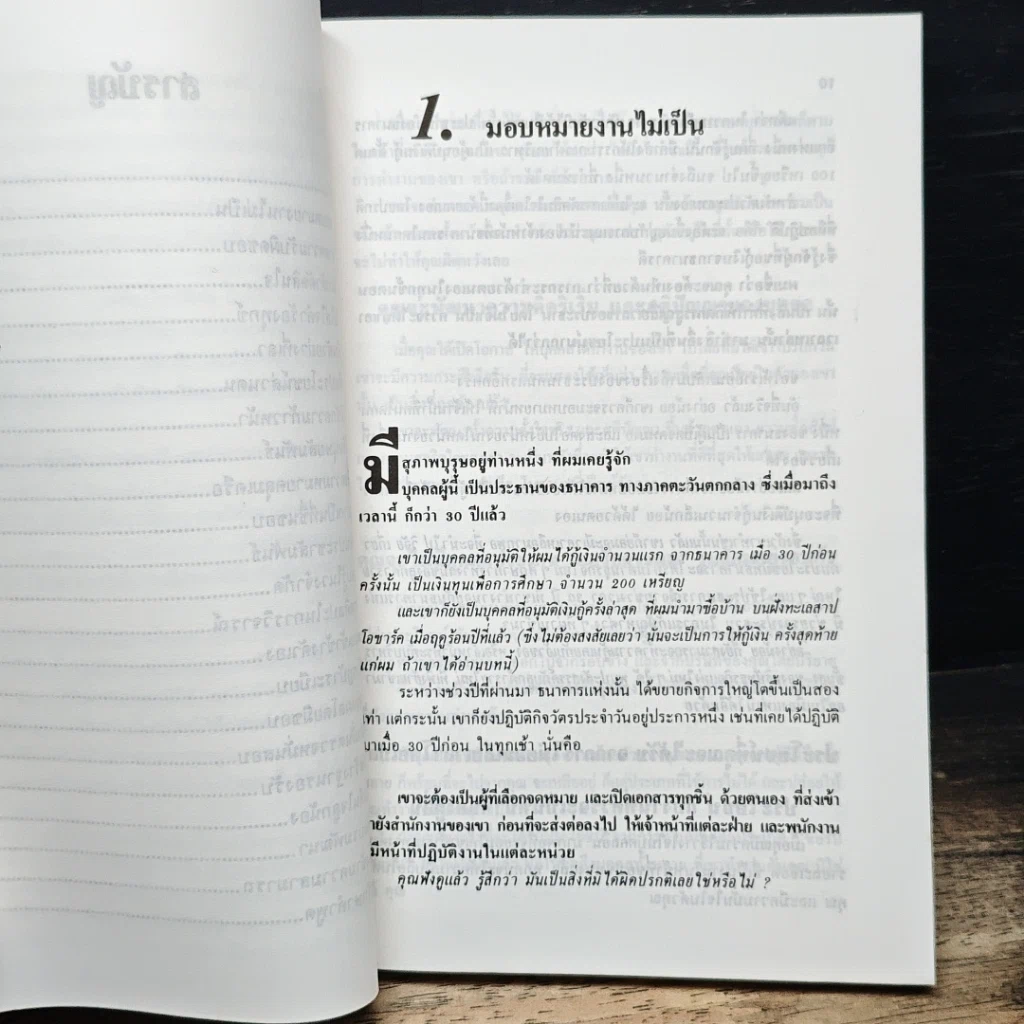 1. มอบหมายงานไม่เป็น
มีสุภาพบุรุษอยู่ท่านหนึ่ง ที่ผมเคยรู้จัก
บุคคลผู้นี้ เป็นประธานของธนาคาร ทางภาคตะวันตกกลาง ซึ่งเมื่อมาถึง
เวลานี้ ก็กว่า 30 ปีแล้ว
เขาเป็นบุคคลที่อนุมัติให้ผมได้กู้เงินจำนวนแรก จากธนาคาร เมื่อ 30 ปีก่อน
ครั้งนั้น เป็นเงินทุนเพื่อการศึกษา จำนวน 200 เหรียญ
และเขาก็ยังเป็นบุคคลที่อนุมัติเงินกู้ครั้งล่าสุด ที่ผมนำมาซื้อบ้าน บนฝั่งทะเลสาป
โอซาร์ค เมื่อฤดูร้อนปีที่แล้ว (ซึ่งไม่ต้องสงสัยเลยว่า นั่นจะเป็นการให้กู้เงิน ครั้งสุดท้าย
แก่ผม ถ้าเขาได้อ่านบทนี้)
ระหว่างช่วงปีที่ผ่านมา ธนาคารแห่งนั้น ได้ขยายกิจการใหญ่โตขึ้นเป็นสอง
เท่า แต่กระนั้น เขาก็ยังปฏิบัติกิจวัตรประจำวันอยู่ประการหนึ่ง เช่นที่เคยได้ปฏิบัติ
มาเมื่อ 30 ปีก่อน ในทุกเช้า นั่นคือ
เขาจะต้องเป็นผู้ที่เลือกจดหมาย และเปิดเอกสารทุกชิ้น ด้วยตนเอง ที่ส่งเข้า
มายังสำนักงานของเขา ก่อนที่จะส่งต่อลงไป ให้เจ้าหน้าที่แต่ละฝ่าย และพนักงาน
มีหน้าที่ปฏิบัติงานในแต่ละหน่วย
คุณฟังดูแล้ว รู้สึกว่า มันเป็นสิ่งที่มิได้ผิดปรกติเลยใช่หรือไม่ ?